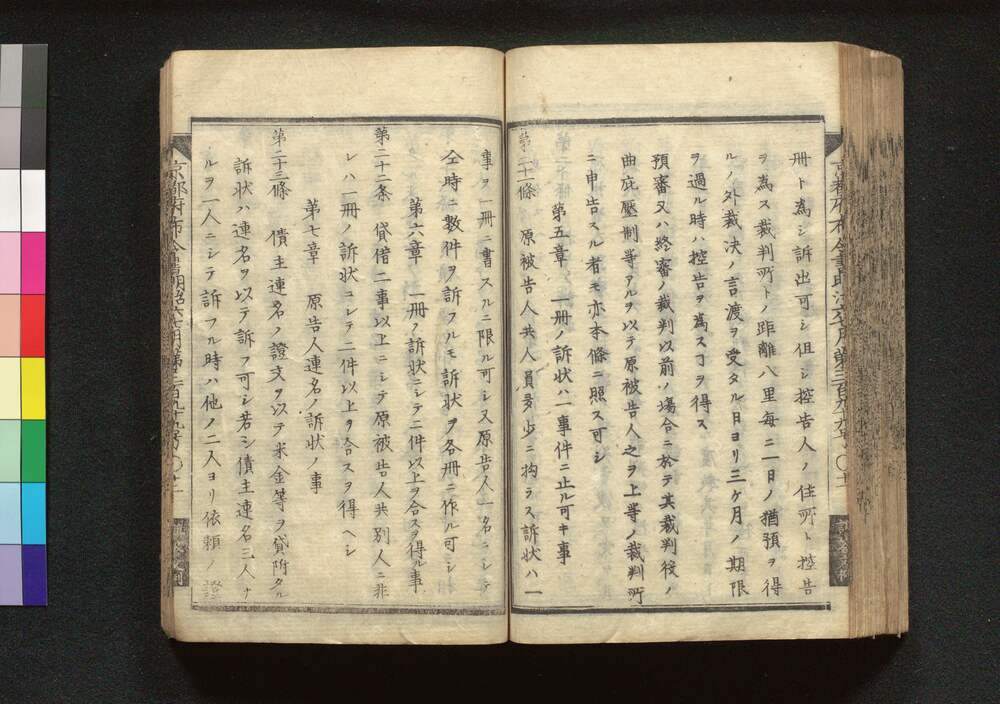 冊ト為シ訴出可シ但シ控告人ノ住所ト控告
ヲ為ス裁判所トノ距離八里毎ニ一日ノ猶預ヲ得
ルノ外裁決ノ言渡ヲ受タル日ヨリ三ケ月ノ期限
ヲ過ル時ハ控告ヲ為スヿヲ得ス
預審又ハ終審ノ裁判以前ノ場合ニ於テ其裁判役ノ
曲庇壓制等アルヲ以テ原被告人之ヲ上等ノ裁判所
ニ申告スル者モ亦本條ニ照ス可シ
第五章 一冊ノ訴状ハ一事件ニ止ル可キ事
第二十一條 原被告人共人員多少ニ拘ラス訴状ハ一
事ヲ一冊ニ書スルニ限ル可シ又原告人一名ニシテ
仝時ニ数件ヲ訴フルモ訴状ヲ各冊ニ作ル可シ
第六章 一冊ノ訴状ニシテ二件以上ヲ合スヲ得ル事
第二十二条 貸借二事以上ニシテ原被告人共別人ニ非
レハ一冊ノ訴状ニシテ二件以上ヲ合スヲ得ヘシ
第七章 原告人連名ノ訴状ノ事
第二十三條 債主連名ノ證文ヲ以テ米金等ヲ貸附タル
訴状ハ連名ヲ以テ訴フ可シ若シ債主連名三人ノ
ルヲ一人ニシテ訴フル時ハ他ノ二人ヨリ依頼ノ證